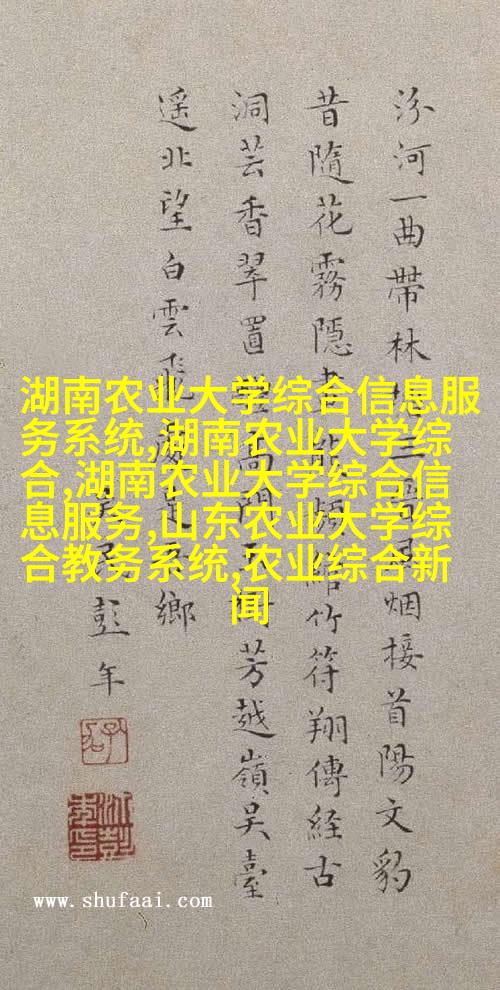 汾河一曲帶林
烟接首陽文豹
昔隨花霧隱
竹符翔傳經古
洞芸香翠置
芳越嶺吴臺
遥北望白雲飛
鄉
彭年
湖南农业大学综合信息服
务系统,湖南农业大学综
合,湖南农业大学综合信
息服务,山东农业大学综
合教务系统,农业综合新
闻
www.shufaai.com